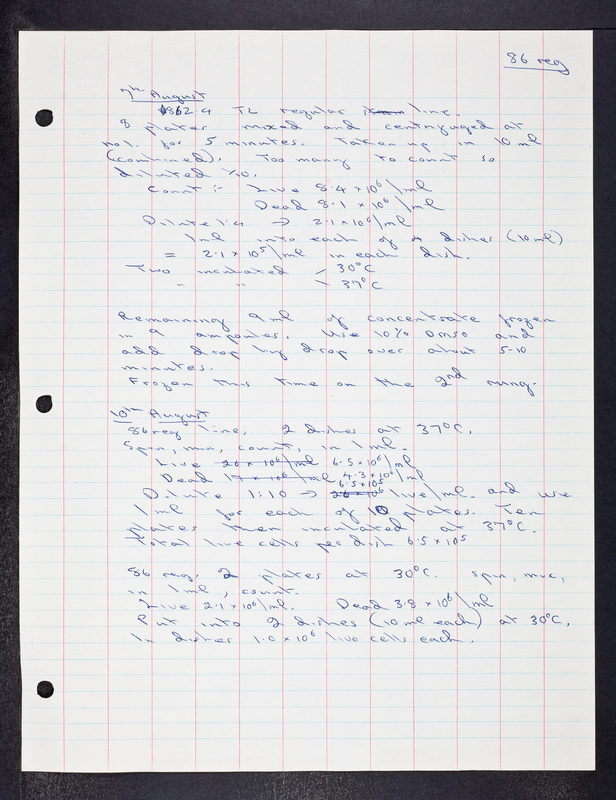 86 reg
7th August
862.4 TL regular line.
8 plates mixed and centrifuged at
no1. for 5 minutes. Taken up in 10 ml
(combined). Too many to count so
diluted 1/10.
Count :- Live 8.4 x 10⁶/ml
Dead 8.1 x 10⁶/ml
Dilute 1:4 → 2.1 x 10⁶/ml
1ml into each of 4 dishes (10 ml)
= 2.1 x 10⁵/ml in each dish.
Two incubated / 30°C
" " \ 37°C
Remaining 9 ml of concentrate frozen
in 9 ampoules. Use 10% DMSO and
add drop by drop over about 5-10
minutes.
Frozen this time on the 2nd rung.
10th August
86 reg line. 2 dishes at 37°C.
Spin, mix, count, in 1 ml.
Live 26 x 10⁶/ml 6.5 x 10⁶/ml
Dead 17 x 10⁶/ml 4.3 x 10⁶/ml
Dilute 1:10 → 26 x 10⁶ 6.5 x 10⁵ live/ml. and use
1 ml for each of 10 plates. Ten
plates then incubated at 37°C.
Total live cells per dish 6.5 x 10⁵
86 reg. 2 plates at 30°C. Spin, mix,
in 1ml, count.
Live 2.1 x 10⁶/ml. Dead 3.8 x 10⁶/ml
Put into 2 dishes (10 ml each) at 30°C.
In dishes 1.0 x 10⁶ live cells each.